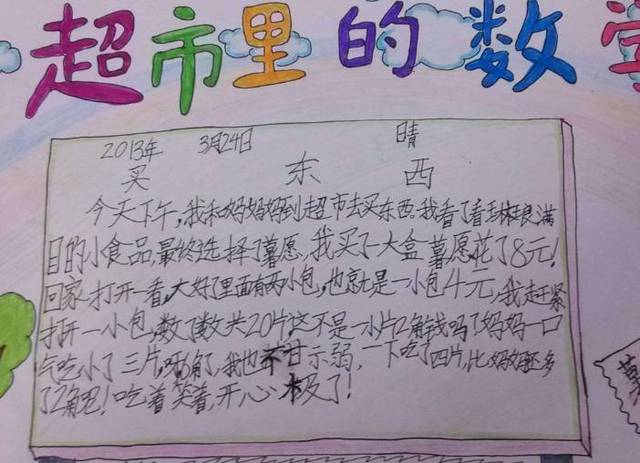 超市里的数学
2013年 3月24日 晴
买东西
今天下午,我和妈妈妈到超市去买东西。我看了看琳琅满
目的小食品,最终选择了薯愿,我买了一大盒薯愿花了8元!
回家打开一看,大好了里面有两小包,也就是一小包4元,我赶紧
打开一小包,数了数共20片这不是一小片2角钱吗?妈妈一口
气吃小了三片,呀6角了,我也不甘示弱,一下吃了四片,比妈妈还多
了2角吧!吃着笑着,开心极了!